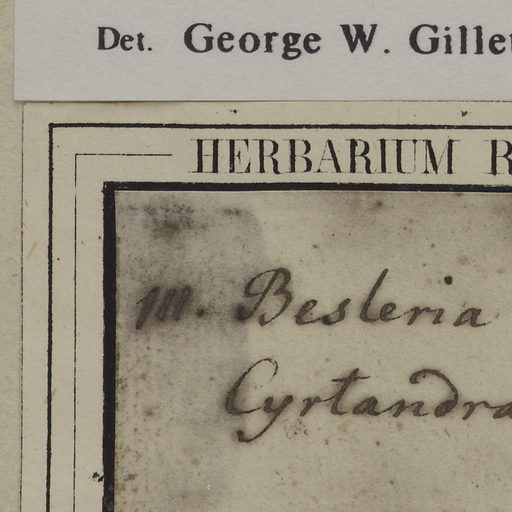 Det. George W. Gillet
HERBARIUM R
Besleria
Cyrtandra